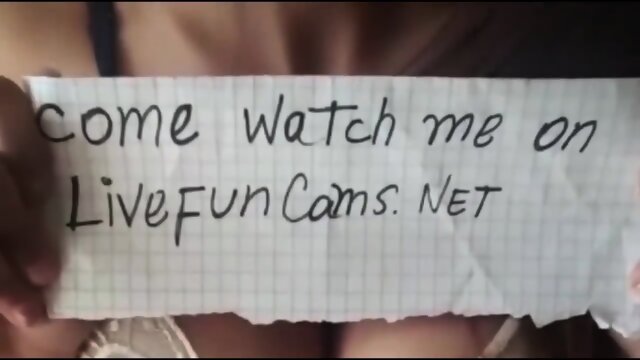 come watch me on
LiveFunCams.NET